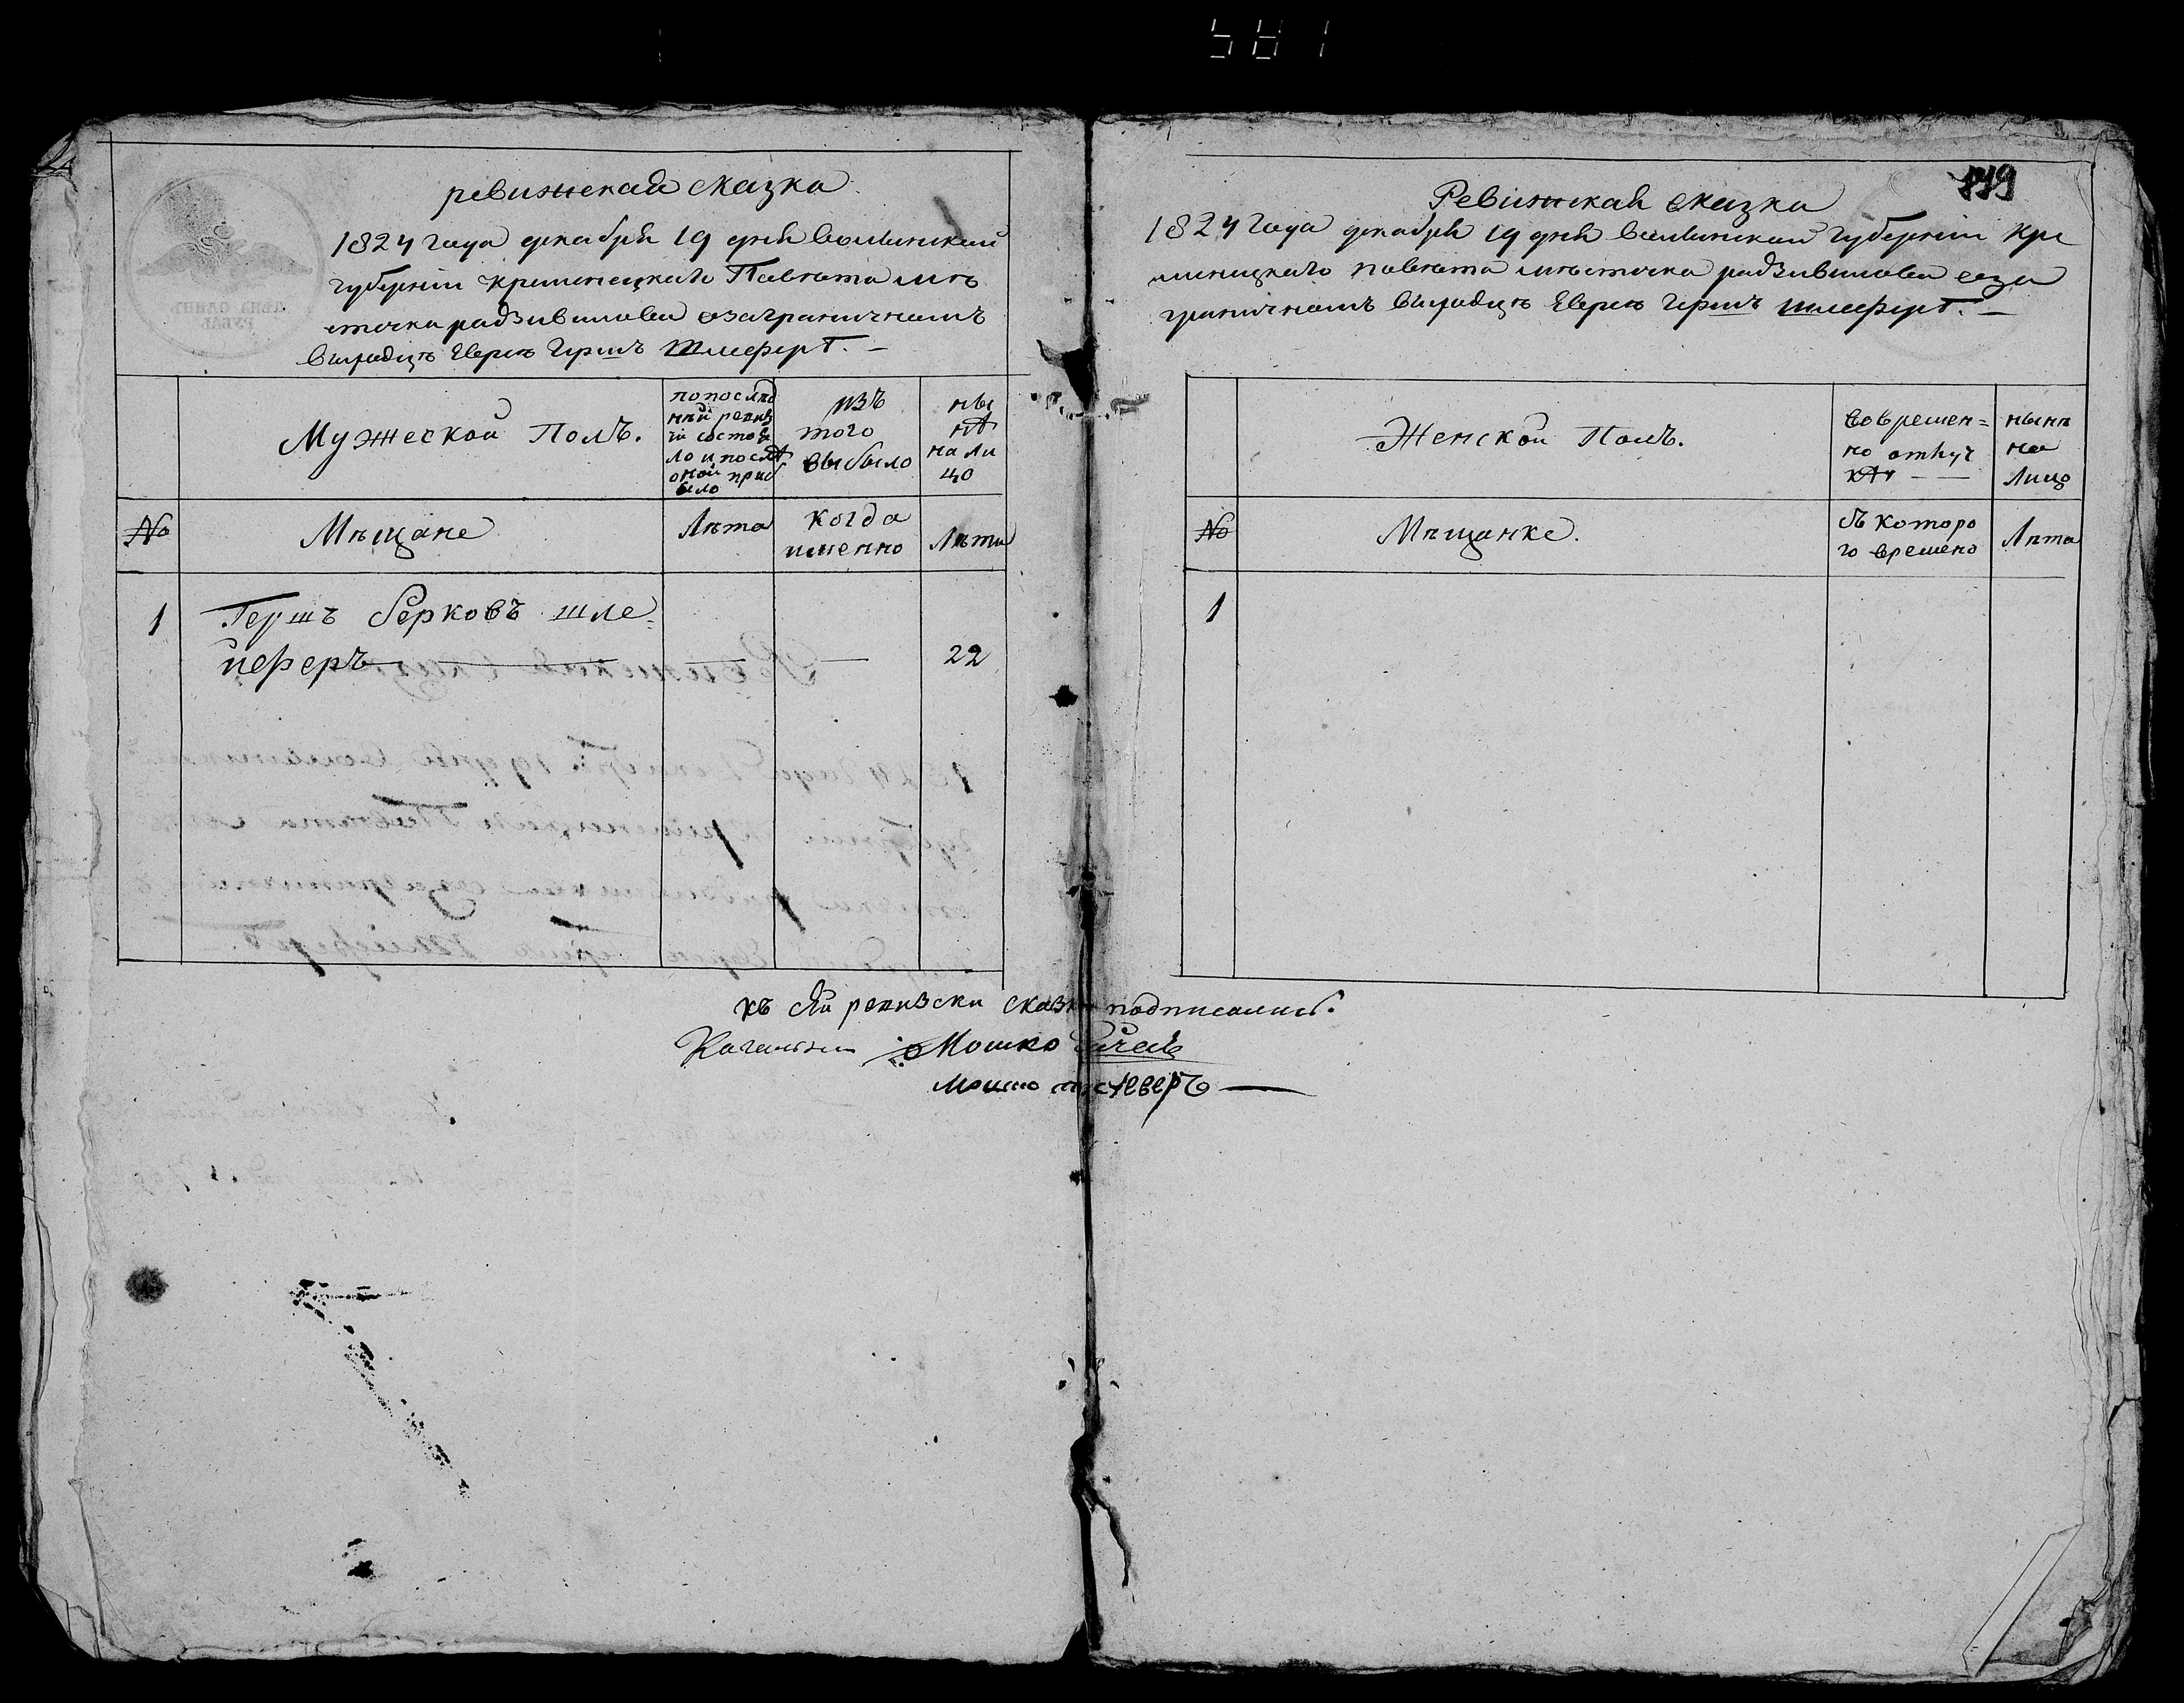 581
ревижская сказка
1824 года декабря 19 дня волинской
губернiи кременецкаго Павета мѣ
сточка радзивилова озаграничномъ
виходцѣ Еврею Гершъ Шлеферъ. —
Мужеской Полъ.
попослѣд
ней ревиз
iи состоя
ло ипослѣ
оной приб
ыло
изъ
того
выбыло
ны
нѣ
на ли
цо
№
Мѣщане
Лѣта
когда
именно
Лѣта
1
Гершъ берковъ шле=
йферъ
22
119
Ревижская сказка
1824 года декабря 19 дня волинской губернiи кре
миницкаго павета мѣсточка радзивилова оза
граничномъ виходцѣ Еврею Гершъ Шлеферъ. —
Женской Полъ.
вовремен=
но отлуч
кѣ
нынѣ
на
лицо
№
Мѣщанке.
съ которо
го времено
Лѣта
1
къ сей ревизски сказки подписалис.
Кагальн Мошко
Мошко